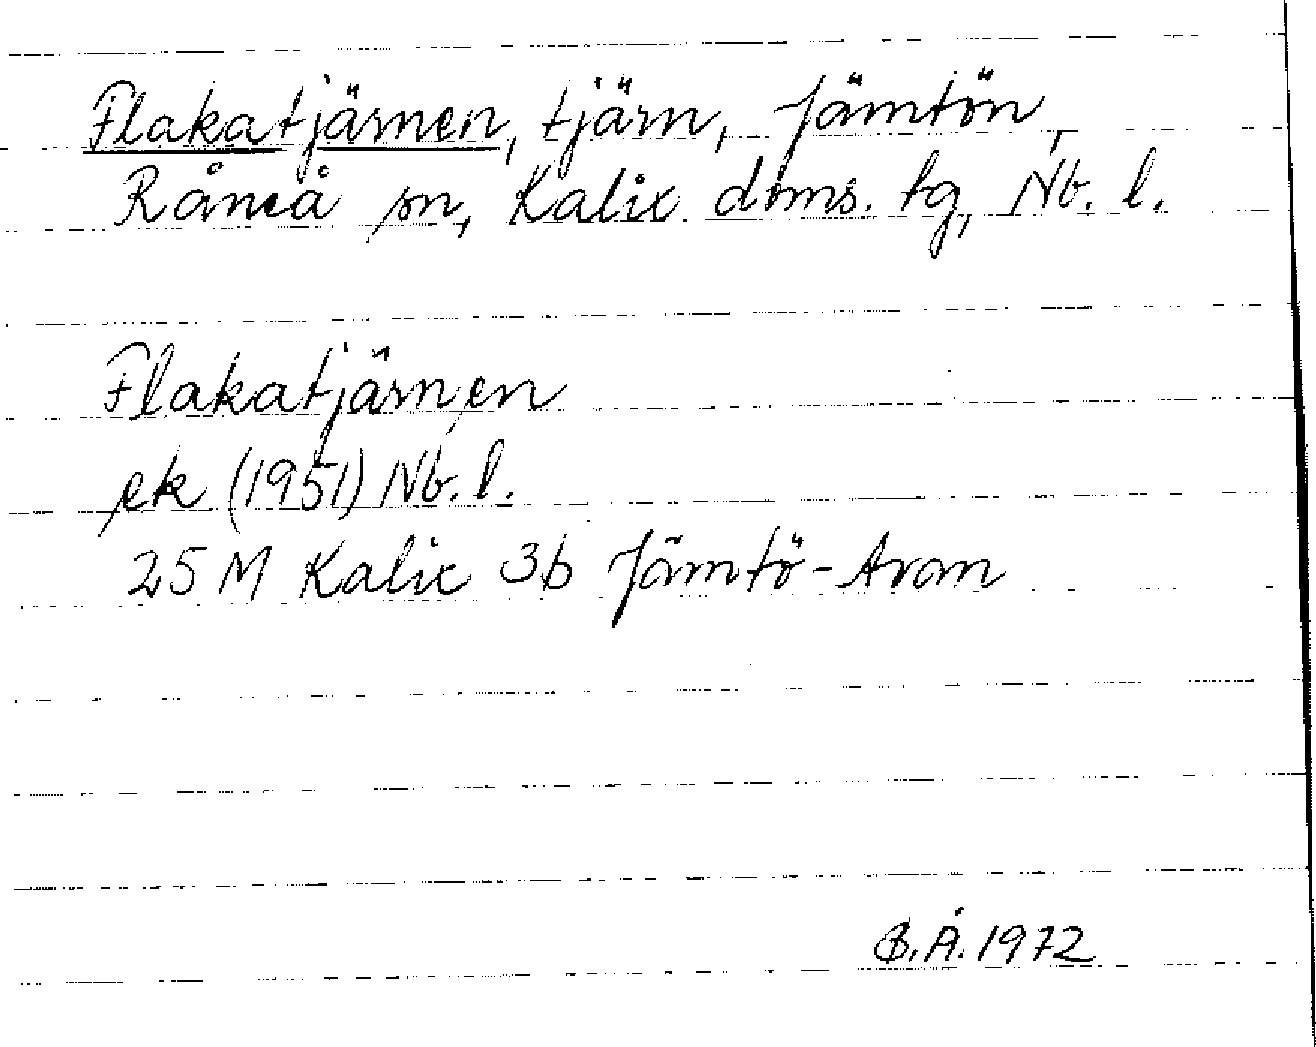 Flakatjärnen, tjärn, Jämtön,
Råneå sn, Kalix doms. tg, Nb. l.
Flakatjärnen
ek (1951) Nb. l.
25 M Kalix 3b Jämtö-Avan
B.Å. 1972